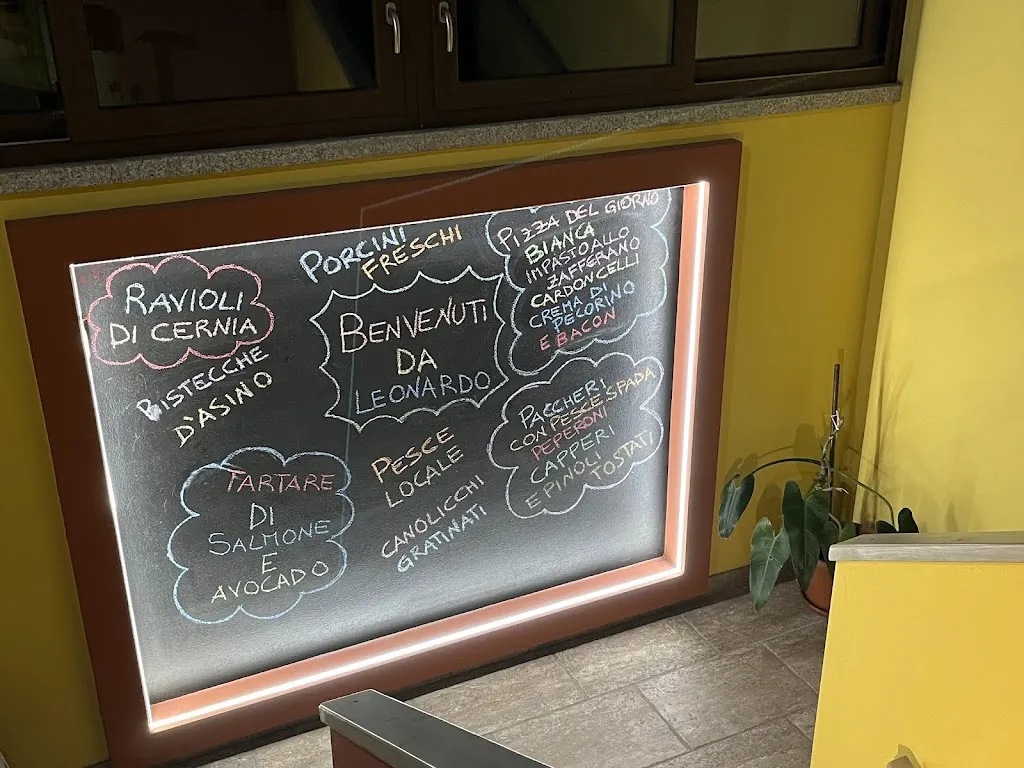 RAVIOLI
DI CERNIA
BISTECCHE
D'ASINO
TARTARE
DI
SALMONE
E
AVOCADO
PORCINI
FRESCHI
BENVENUTI
DA
LEONARDO
PESCE
LOCALE
CANOLICCHI
GRATINATI
PIZZA DEL GIORNO
BIANCA
IMPASTO ALLO
ZAFFERANO
CARDONCELLI
CREMA DI
PECORINO
E BACON
PACCHERI
CON PESCE SPADA
PEPERONI
CAPPERI
E PINOLI TOSTATI